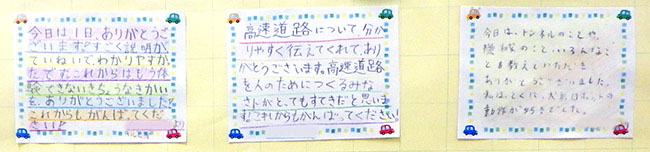 今日は1日、ありがとうご
ざいます。すごく説明が、
ていねいで、わかりやすか
たです。これからはもう体
験できないきちょうなきかい
を、ありがとうございました。
これからもがんばってくだ
さい!
より
高速道路について分か
りやすく伝えてくれて、あり
がとうございます。高速道路
を人のためにつくるみな
さんがとってもすてきだと思いま
す。これからもがんばってください。
今日は、トンネルのことや、
機械のこと、いろんなこ
とを教えていただき
ありがとうございました。
私は、とくに、
動
が好きでした。